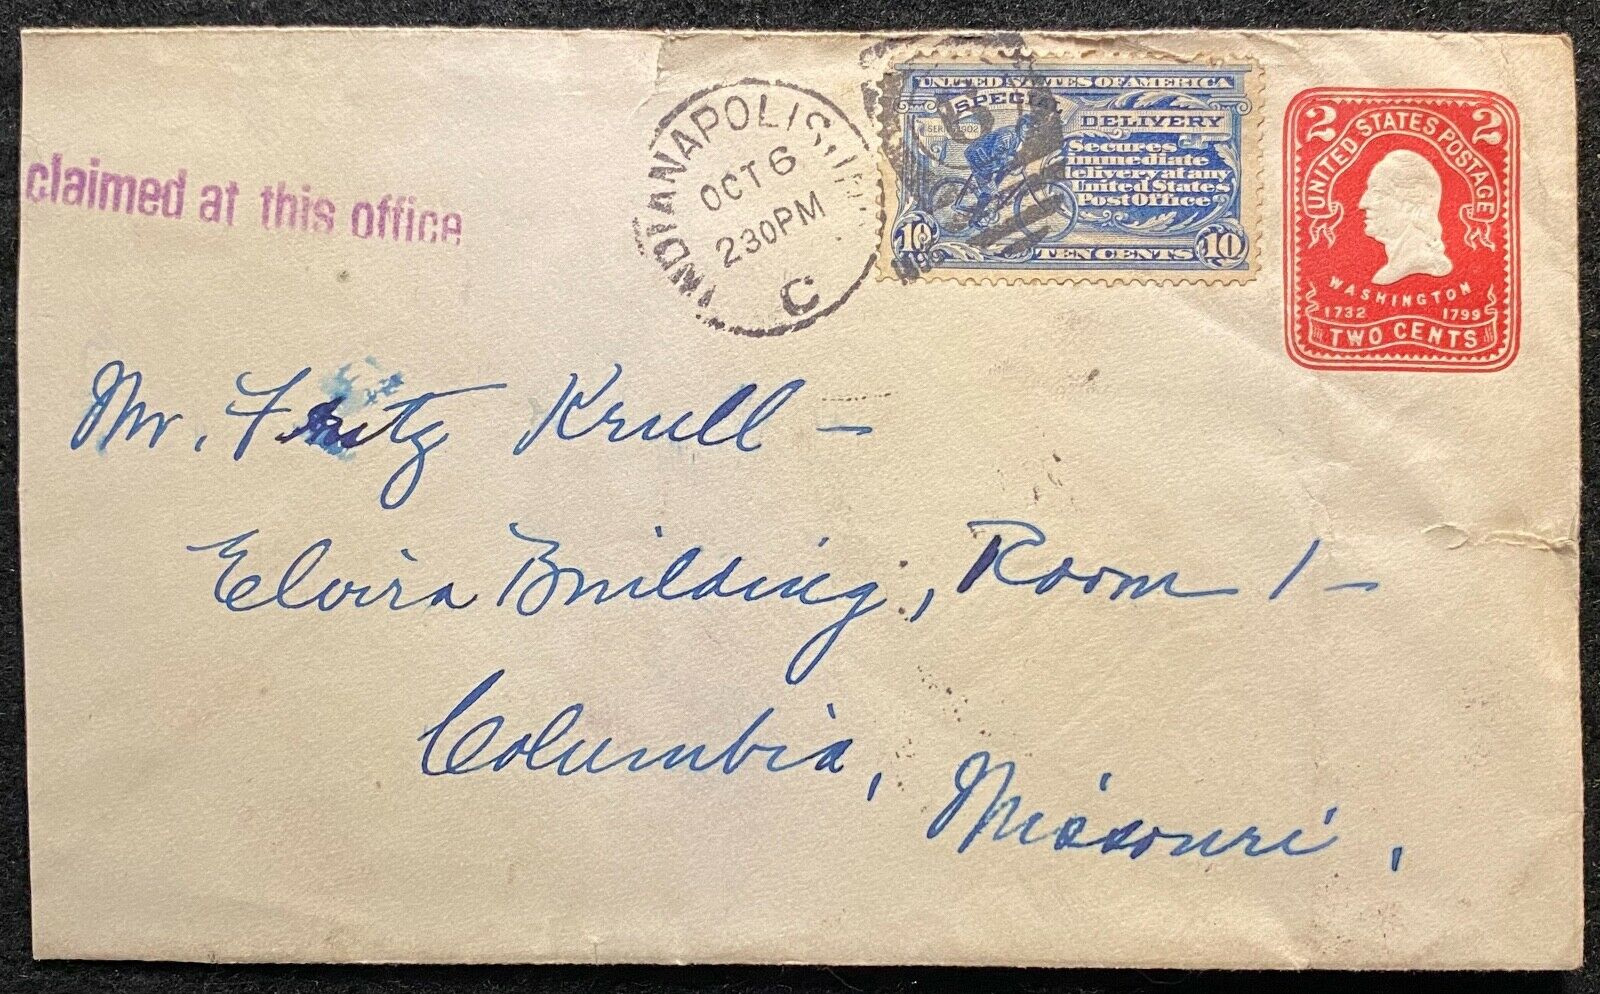 claimed at this office
INDIANAPOLIS, IND.
OCT 6
2 30 PM
C
UNITED STATES OF AMERICA
SPECIAL
DELIVERY
SERIES 1902
Secures
immediate
delivery at any
United States
Post Office
10
TEN CENTS
10
2 2
UNITED STATES POSTAGE
WASHINGTON
1732 1799
TWO CENTS
Mr. Fritz Krull –
Elvira Building, Room 1 –
Columbia,
Missouri,